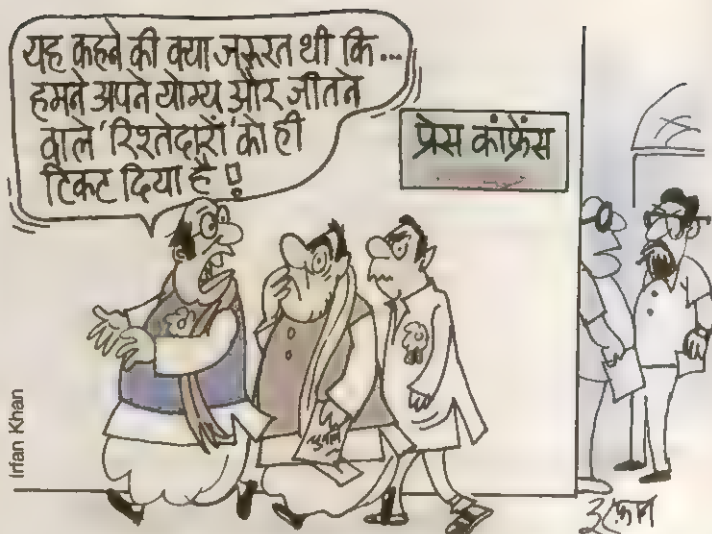 यह कहने की क्या जरूरत थी कि...
हमने अपने योग्य और जीतने
वाले 'रिश्तेदारों' को ही
टिकट दिया है !
प्रेस कांफ्रेंस
Irfan Khan
इरफ़ान